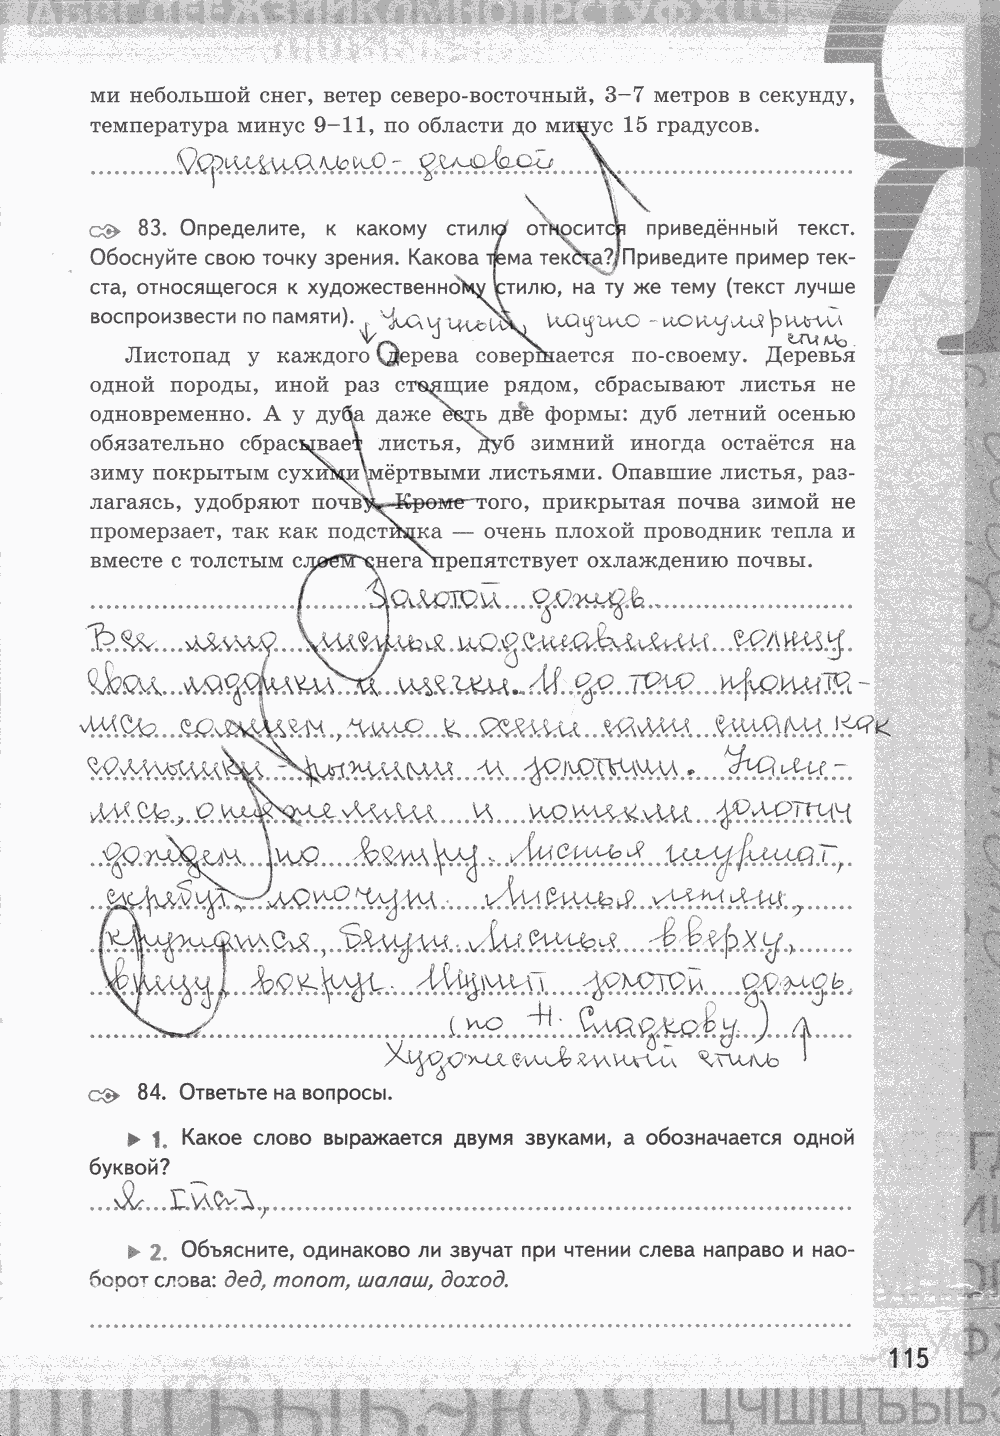 ми небольшой снег, ветер северо-восточный, 3–7 метров в секунду,
температура минус 9–11, по области до минус 15 градусов.
Официально-деловой
83. Определите, к какому стилю относится приведённый текст.
Обоснуйте свою точку зрения. Какова тема текста? Приведите пример тек-
ста, относящегося к художественному стилю, на ту же тему (текст лучше
воспроизвести по памяти). Научный, научно-популярный
стиль.
Листопад у каждого дерева совершается по-своему. Деревья
одной породы, иной раз стоящие рядом, сбрасывают листья не
одновременно. А у дуба даже есть две формы: дуб летний осенью
обязательно сбрасывает листья, дуб зимний иногда остаётся на
зиму покрытым сухими мёртвыми листьями. Опавшие листья, раз-
лагаясь, удобряют почву. Кроме того, прикрытая почва зимой не
промерзает, так как подстилка — очень плохой проводник тепла и
вместе с толстым слоем снега препятствует охлаждению почвы.
Золотой дождь
Все лето листья подставляли солнцу
свои ладошки и щечки. И до того пропита-
лись солнцем, что к осени сами стали как
солнышки - рыжими и золотыми. Нали-
лись, отяжелели и потекли золотым
дождем по ветру. Листья шуршат,
скребут, лопочут. Листья летят,
кружатся, бегут. Листья вверху,
внизу, вокруг. Шумит золотой дождь.
(по Н. Сладкову.)
Художественный стиль
84. Ответьте на вопросы.
1. Какое слово выражается двумя звуками, а обозначается одной
буквой?
Я [йа],
2. Объясните, одинаково ли звучат при чтении слева направо и нао-
борот слова: дед, топот, шалаш, доход.
115
ЦЧШЩЪЫЬ